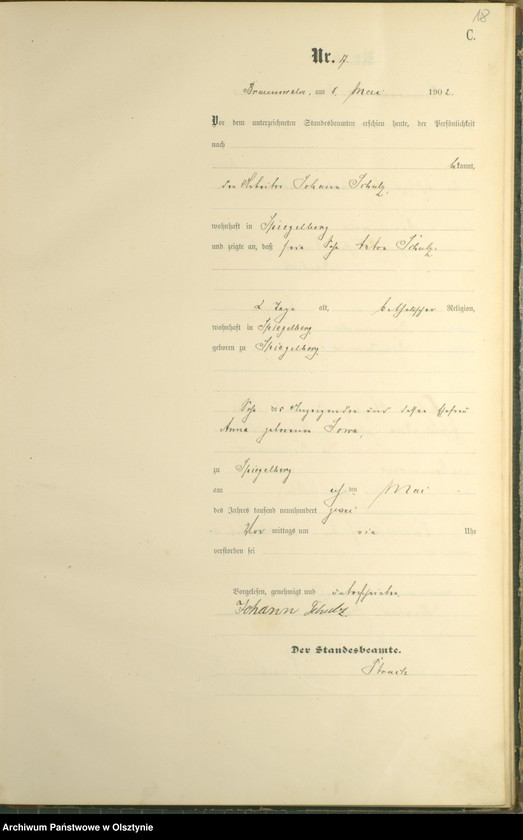 18
C.
Nr. 17
Braunswalde, am 8. Mai 1902.
Vor dem unterzeichneten Standesbeamten erschien heute, der Persönlichkeit
nach
bekannt,
der Arbeiter Johann Schulz,
wohnhaft in Spiegelberg
und zeigte an, daß sein Sohn Schulz,
2 Tage alt, katholischer Religion,
wohnhaft in Spiegelberg
geboren zu Spiegelberg
Sohn des Anzeigenden und dessen Ehefrau
Anna geborenen
zu Spiegelberg
am ten Mai
des Jahres tausend neunhundert zwei
Vor mittags um Uhr
verstorben sei
Vorgelesen, genehmigt und unterschrieben
Johann Schulz
Der Standesbeamte.
Archiwum Państwowe w Olsztynie